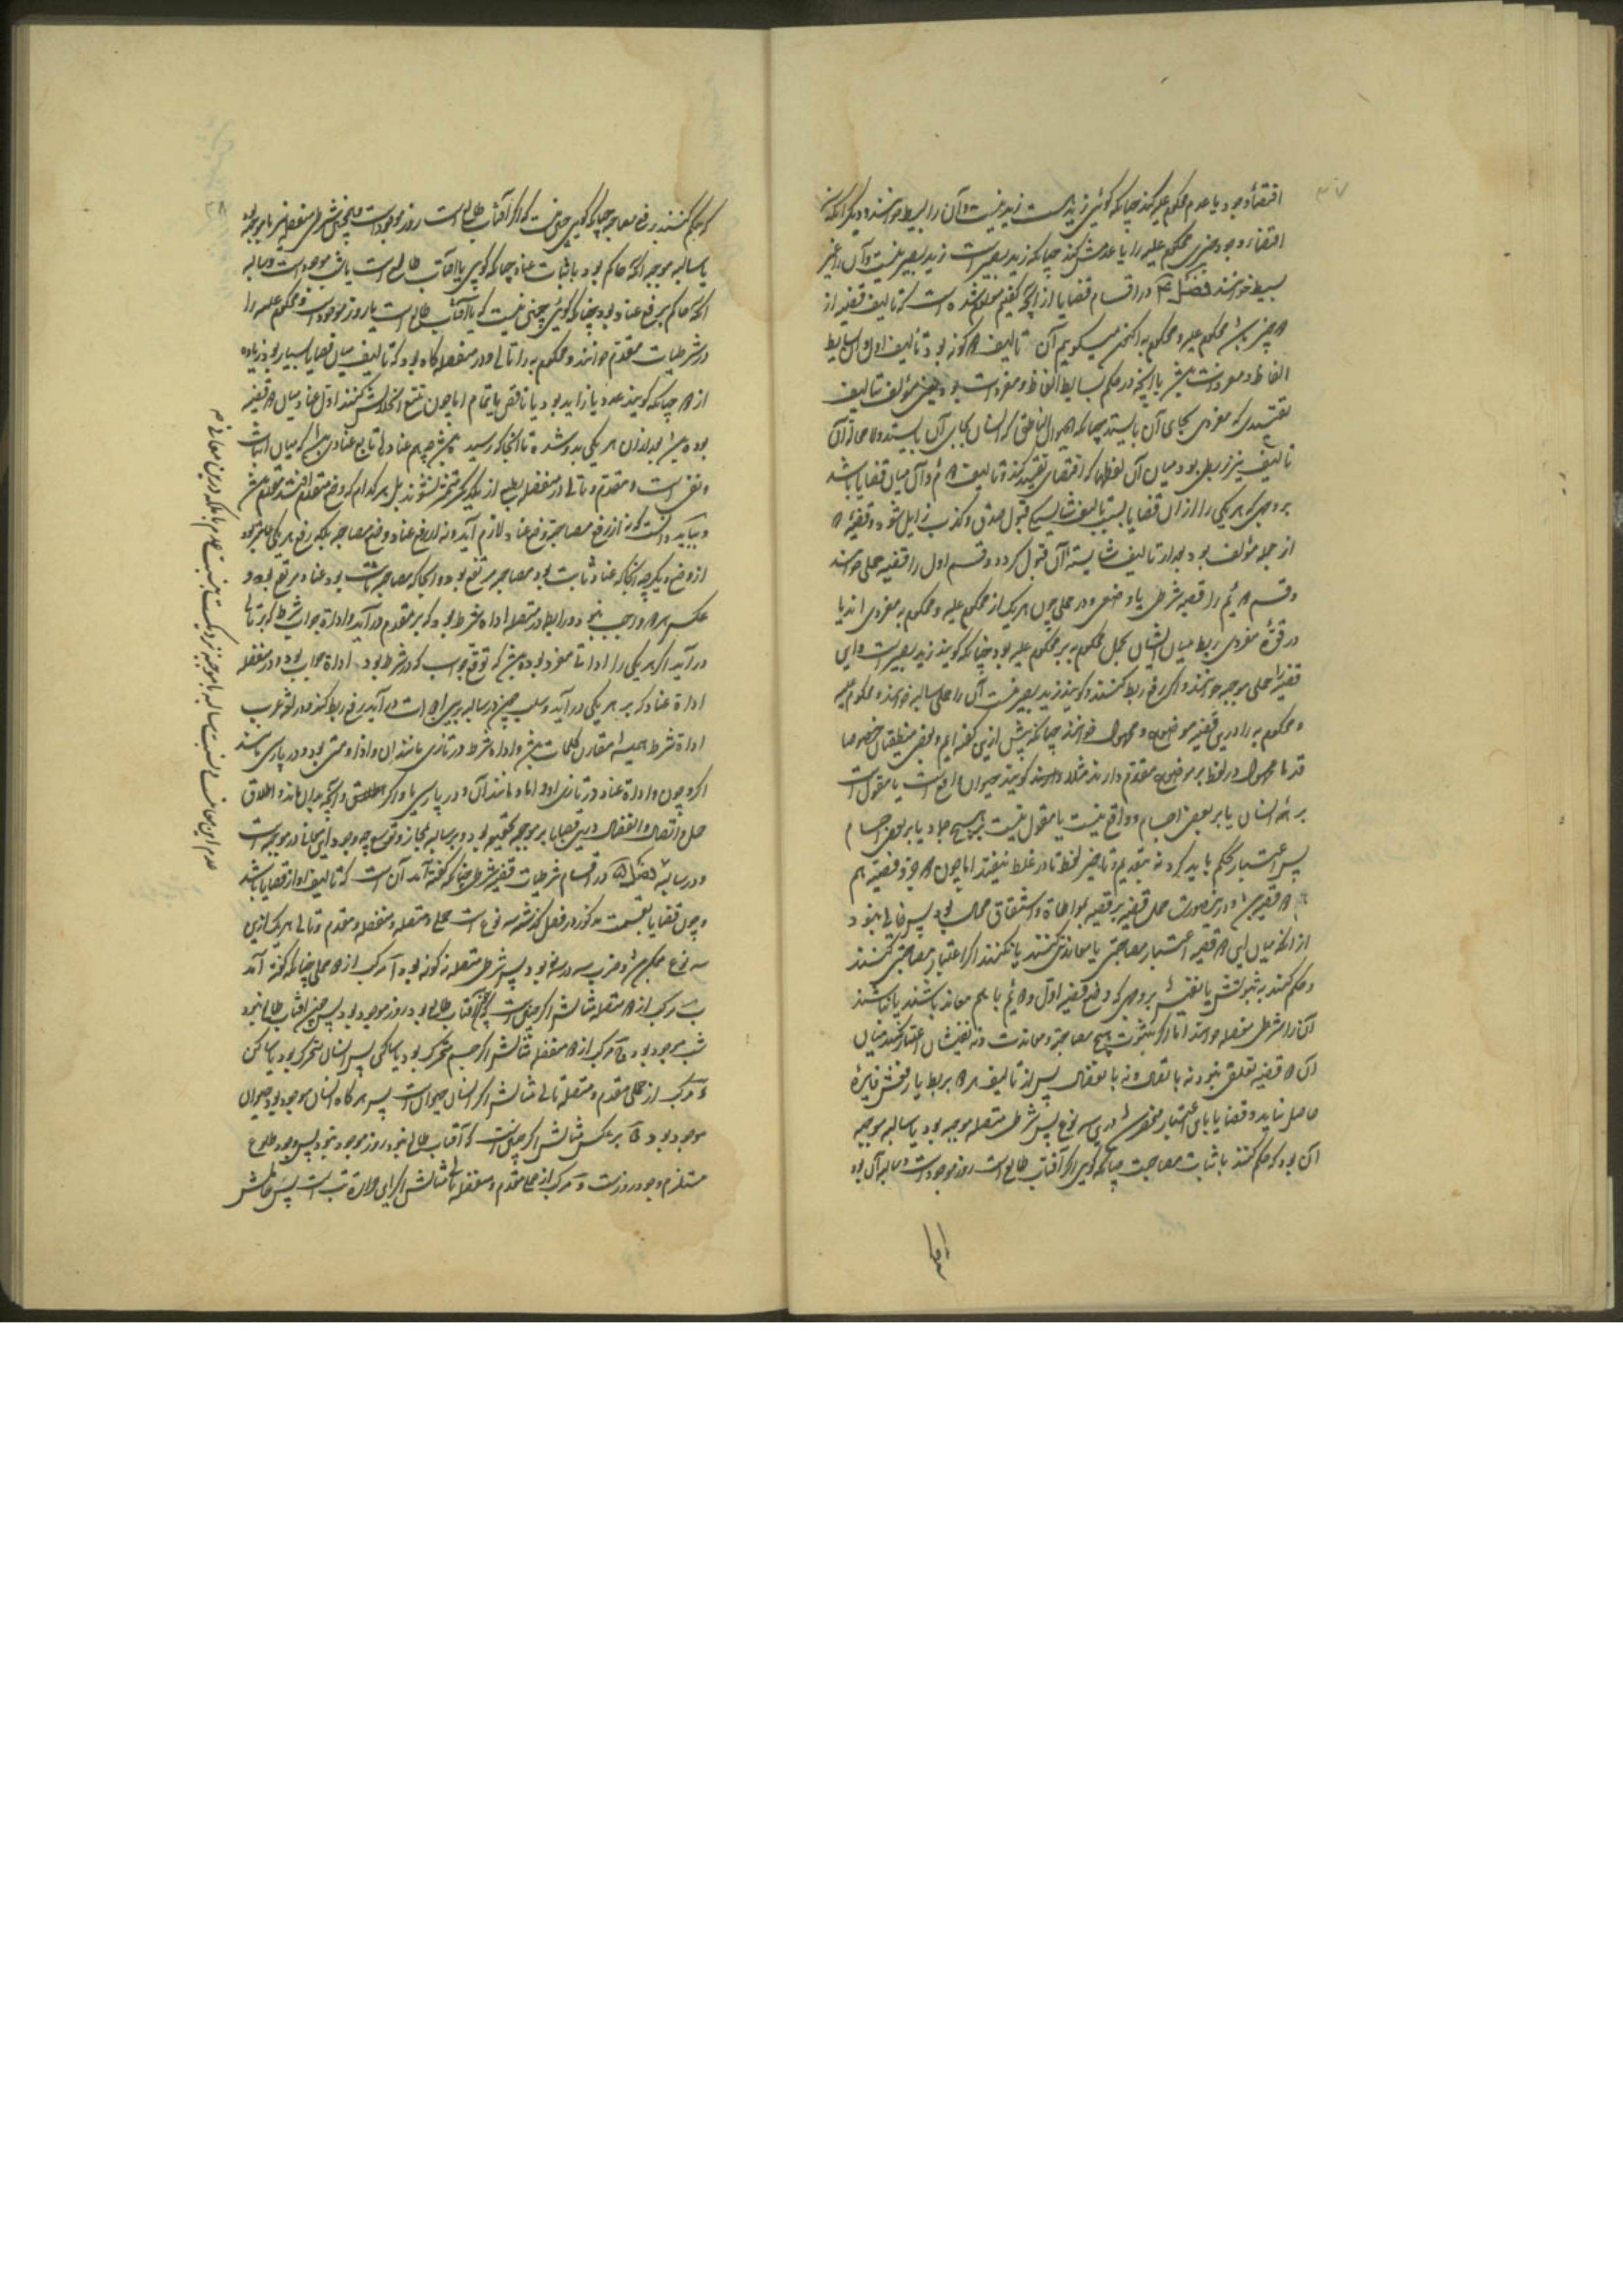 اقتضاء وجود یا عدم محکوم علیه کند چنانکه گوئی زید هست زید نیست و آن را بسیط خوانند و دیگر آنکه
اقتضاء وجود چیزی محکوم علیه را یا عدمش کند چنانکه زید بصیر است زید بصیر نیست و آن را غیر
بسیط خوانند فصل در اقسام قضایا از آنچه گفتیم معلوم شده است که تالیف قضیه از
دو چیز باشد محکوم علیه و محکوم به اکنون میگوییم آن تالیف دو گونه بود تالیف اول
الفاظ و مفردات باشد یا آنچه در حکم بسایط الفاظ و مفردات بود یعنی مؤلف بتالیف
تقییدی که مفردی بجای آن بایستد چنانکه الحیوان الناطق که انسان بجای آن بایستد و لا محاله آن
تالیف نیز ربطی بود میان آن لفظها که اقتضای تقیید کند و تالیف دوم آن میان قضایا باشد
بر وجهی که هر یکی را از آن قضایا بسبب تالیف شایستگی قبول صدق و کذب زایل شود و قضیه
از جمله مؤلف بود بعد از تالیف شایسته آن قبول کرده و قسم اول را قضیه حملی خوانند
و قسم دویم را قضیه شرطی یا وضعی و در حملی چون هر یک از محکوم علیه و محکوم به مفردی اند یا
در قوة مفردی ربط میان ایشان بحمل محکوم به بر محکوم علیه بود چنانکه گویند زید بصیر است و این
قضیه را حملی موجبه خوانند و اگر رفع ربط کنند و گویند زید بصیر نیست آن را حملی سالبه خوانند و محکوم علیه
و محکوم به را درین قضیه موضوع و محمول خوانند چنانکه پیش ازین گفته ایم و بعضی منطقیان خصوصا
قدما محمول در لفظ بر موضوع مقدم دارند مثلا گویند حیوان واقع است یا مقول است
بر همه انسان یا بر بعضی اجسام و واقع نیست یا مقول نیست بر هیچ جماد یا بر بعضی اجسام
پس اعتبار بحکم باید کرد نه بتقدیم و تاخیر لفظ تا در غلط نیفتد اما چون دو جزو قضیه هم
دو قضیه باشد و درینصورت حمل قضیه بر قضیه بمواطاة و اشتقاق محال بود پس خالی نبود
از آنکه میان این دو قضیه اعتبار مصاحبتی یا معاندتی کنند یا نکنند اگر اعتبار مصاحبتی کنند
و حکم کنند به ثبوتش یا نفیش بر وجهی که وضع قضیه اول و دویم با هم معاند باشند یا نباشند
آن را شرطی منفصله خوانند اما اگر بثبوت هیچ مصاحبة و معاندت و نه نفیشان اعتبار نکنند میان
آن دو قضیه تعلق نبود نه باتصال و نه بانفصال پس از تالیف هر دو بربط یا رفعش فایدة
حاصل نیاید و قضایا باین اعتبار منحصر باشد درین سه نوع پس شرطی متصله موجبه بود یا سالبه موجبه
آن بود که حکم کنند باثبات مصاحبت چنانکه گویی اگر آفتاب طالع است روز موجود است و سالبه آن بود
که حکم کنند برفع مصاحبت چنانکه گویی چنین نیست که اگر آفتاب طالع است روز موجود است و همچنین شرطی منفصله نیز یا موجبه بود
یا سالبه موجبه آنکه حاکم بود باثبات عناد چنانکه گویی یا آفتاب طالع است یا شب موجود است و سالبه
آنکه حاکم برفع عناد بود چنانکه گوئی چنین نیست که یا آفتاب طالع است یا روز موجود است و محکوم علیه را
در شرطیات مقدم خوانند و محکوم به را تالی و در منفصله گاه بود که تالیف میان قضایا بسیار بود زیاده
از دو چنانکه گویند عدد یا زاید بود یا ناقص یا تمام اما چون تتبع انحلالش کنند اول عناد میان دو قضیه
بوده باشد بعد از آن هر یکی بدو شده تا آنجا که رسید باشد چه هم عنادی تابع عنادی باشد که میان اثبات
و نفی است و مقدم و تالی در منفصله بطبع از یکدیگر متمیز نشوند بل هر کدام که وضع مقدم افتد مقدم باشد
و بباید دانست که نه از رفع مصاحبة وضع عناد لازم آید و نه از رفع عناد وضع مصاحبة بلکه رفع هر یکی عامتر بود
از وضع دیگر چه آنجا که عناد ثابت بود مصاحبه مرتفع بود و آنجا که مصاحبه ثابت بود عناد مرتفع بود و
عکس هر دو واجب نبود و رابطه در متصله اداة شرط بود که بر مقدم در آید و اداة جواب شرط که بر تالی
در آید اگر هر یکی را اداتی مفرد بوده باشد که توقع جواب که در شرط بود اداة جواب بود و در منفصله
اداة عناد که بر هر یکی در آید و سلب چون در سالبه برین ادوات در آید رفع ربط کند و در لغة عرب
اداة شرط همیشه مقارن کلمات باشد و اداة شرط در تازی مانند ان و اذا و متی بود و در پارسی مانند
اگر و چون و اداة عناد در تازی او و اما و مانند آن و در پارسی یا و اگر و آنچه بدان ماند و اطلاق
حمل و اتصال و انفصال درین قضایا بر موجبه بحقیقه بود و بر سالبه بمجاز و توسع چه وجود این معانی در موجبه است
و در سالبه فصل در اقسام شرطیات قضیه شرطی چنانکه گفته آمد آن است که تالیف او از قضایا باشد
و چون قضایا بقسمت مذکور در فصل گذشته سه نوع است حملی و متصله و منفصله و مقدم و تالی هر یک ازین
سه نوع ممکن باشد و ضرب سه در سه نه بود پس شرطی متصله نه گونه بود آ مرکب از دو حملی چنانکه گفته آمد
ب مرکب از دو متصله مثالش اگر چنین است که چون آفتاب طالع بود روز موجود بود پس چون آفتاب طالع نبود
شب موجود بود ج مرکب از دو منفصله مثالش اگر جسم متحرک بود یا ساکن پس انسان متحرک بود یا ساکن
د مرکب از حملی مقدم و متصله تالی مثالش اگر انسان حیوان است پس هر گاه انسان موجود بود حیوان
موجود بود ه بر عکس مثالش اگر چنین است که تا آفتاب طالع نبود روز موجود نبود پس وجود طلوع
مستلزم وجود روز است و مرکب از حملی مقدم و منفصله تالی مثالش اگر این حرارة تب است پس